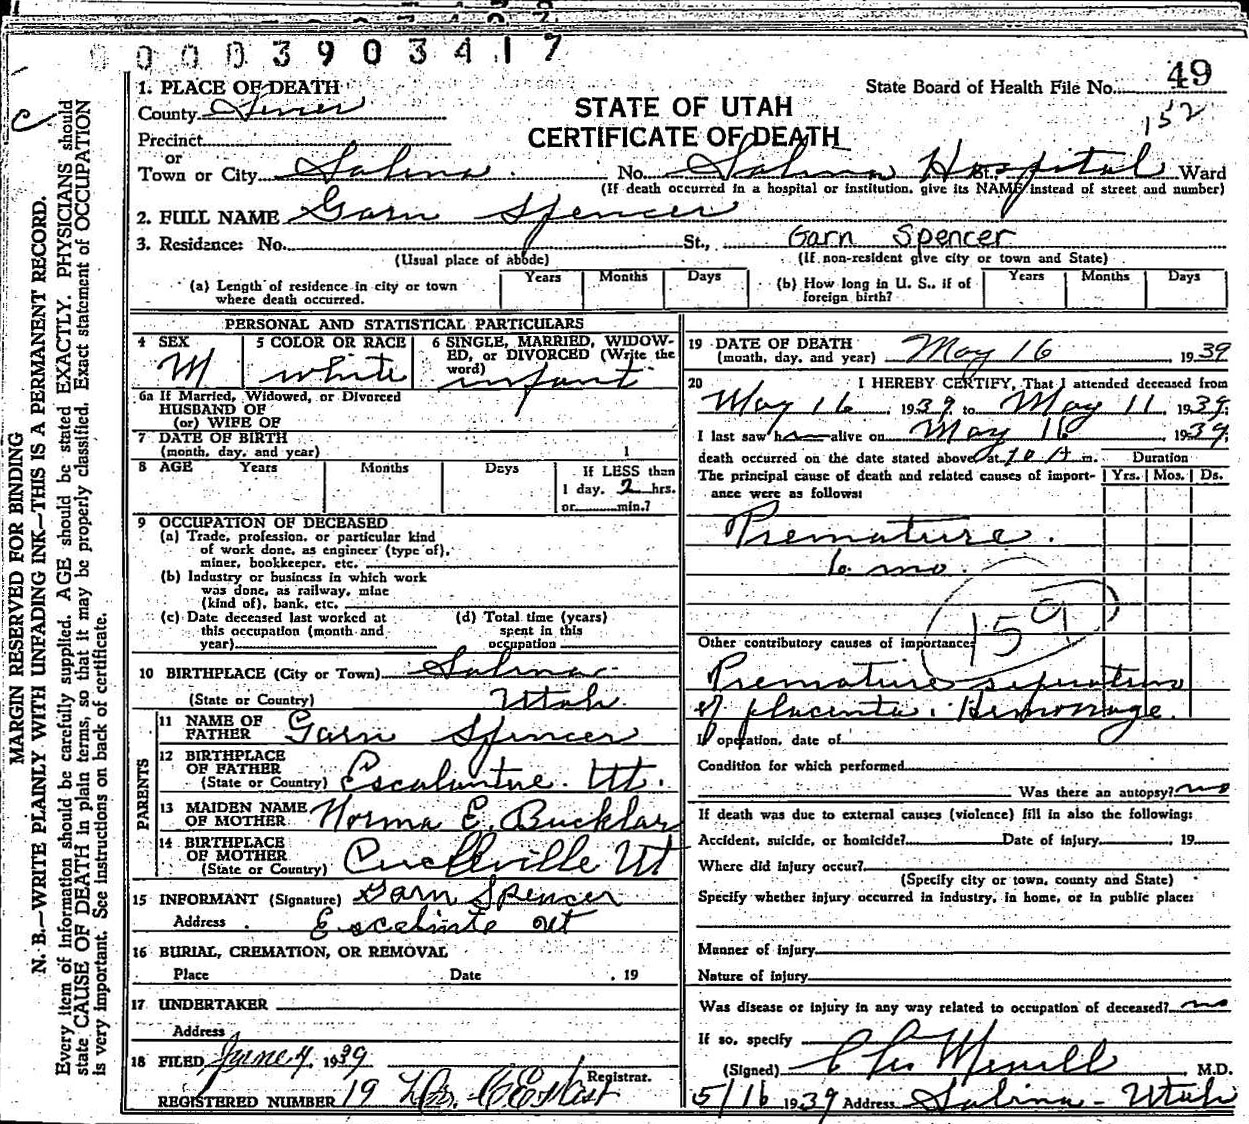 00003903417
49
1. PLACE OF DEATH
State Board of Health File No.
152
County
STATE OF UTAH
CERTIFICATE OF DEATH
Precinct
or
Town or City Salina No. Salina Hospital St. Ward
(If death occurred in a hospital or institution, give its NAME instead of street and number)
2. FULL NAME Garn Spencer
3. Residence: No. St., Garn Spencer
(Usual place of abode) (If non-resident give city or town and State)
(a) Length of residence in city or town where death occurred. Years Months Days
(b) How long in U. S., if of foreign birth? Years Months Days
PERSONAL AND STATISTICAL PARTICULARS
4 SEX M
5 COLOR OR RACE white
6 SINGLE, MARRIED, WIDOWED, or DIVORCED (Write the word) infant
6a If Married, Widowed, or Divorced
HUSBAND OF
(or) WIFE OF
7 DATE OF BIRTH
(month, day, and year) 1
8 AGE Years Months Days If LESS than
1 day, 2 hrs.
or min.?
9 OCCUPATION OF DECEASED
(a) Trade, profession, or particular kind
of work done, as engineer (type of),
miner, bookkeeper, etc.
(b) Industry or business in which work
was done, as railway, mine
(kind of), bank, etc.
(c) Date deceased last worked at
this occupation (month and
year)
(d) Total time (years)
spent in this
occupation
10 BIRTHPLACE (City or Town) Salina
(State or Country) Utah
PARENTS
11 NAME OF FATHER Garn Spencer
12 BIRTHPLACE OF FATHER
(State or Country) Escalantue. Ut.
13 MAIDEN NAME OF MOTHER Norma E. Bucklar
14 BIRTHPLACE OF MOTHER
(State or Country) Ut
15 INFORMANT (Signature) Garn Spencer
Address Escelinte Ut
16 BURIAL, CREMATION, OR REMOVAL
Place Date , 19
17 UNDERTAKER
Address
18 FILED June 4, 1939
Registrar.
REGISTERED NUMBER 19
19 DATE OF DEATH
(month, day, and year) May 16, 1939
20 I HEREBY CERTIFY, That I attended deceased from
May 16, 1939 to May 11, 1939;
I last saw h alive on May 16, 1939;
death occurred on the date stated above at 10 A m.
Duration
The principal cause of death and related causes of importance were as follows: Yrs. Mos. Ds.
Premature.
6 mo.
159
Other contributory causes of importance:
Premature separation
of placenta. Hemorrage.
If operation, date of
Condition for which performed
Was there an autopsy? no
If death was due to external causes (violence) fill in also the following:
Accident, suicide, or homicide? Date of injury , 19
Where did injury occur?
(Specify city or town, county and State)
Specify whether injury occurred in industry, in home, or in public place:
Manner of injury
Nature of injury
Was disease or injury in any way related to occupation of deceased? no
If so, specify
(Signed) M.D.
5/16 1939 Address Salina - Utah
MARGIN RESERVED FOR BINDING
N. B.—WRITE PLAINLY WITH UNFADING INK—THIS IS A PERMANENT RECORD.
Every item of information should be carefully supplied. AGE should be stated EXACTLY. PHYSICIANS should
state CAUSE OF DEATH in plain terms, so that it may be properly classified. Exact statement of OCCUPATION
is very important. See instructions on back of certificate.